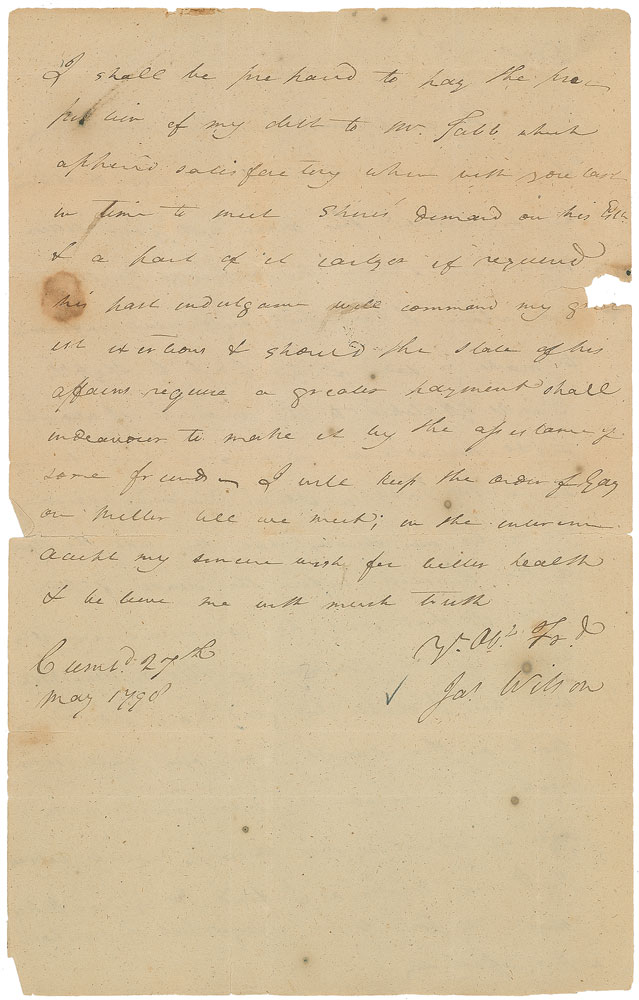 I shall be prepared to pay the pro-
portion of my debt to Mr. Tabb which
appeard satisfactory when with you last
in time to meet demand on his Este.
& a part of it earlyer if required
his past indulgance will command my great
est exertions & should the state of his
affairs require a greater payment shall
indeavour to make it by the assistance of
some friend – I will keep the order of Gay
on Miller till we meet; in the interim
accept my sincere wish for better health
& beleeve me with much truth
Yr. Obt. Frd
Cumbd. 27th
May 1798
Jas Wilson